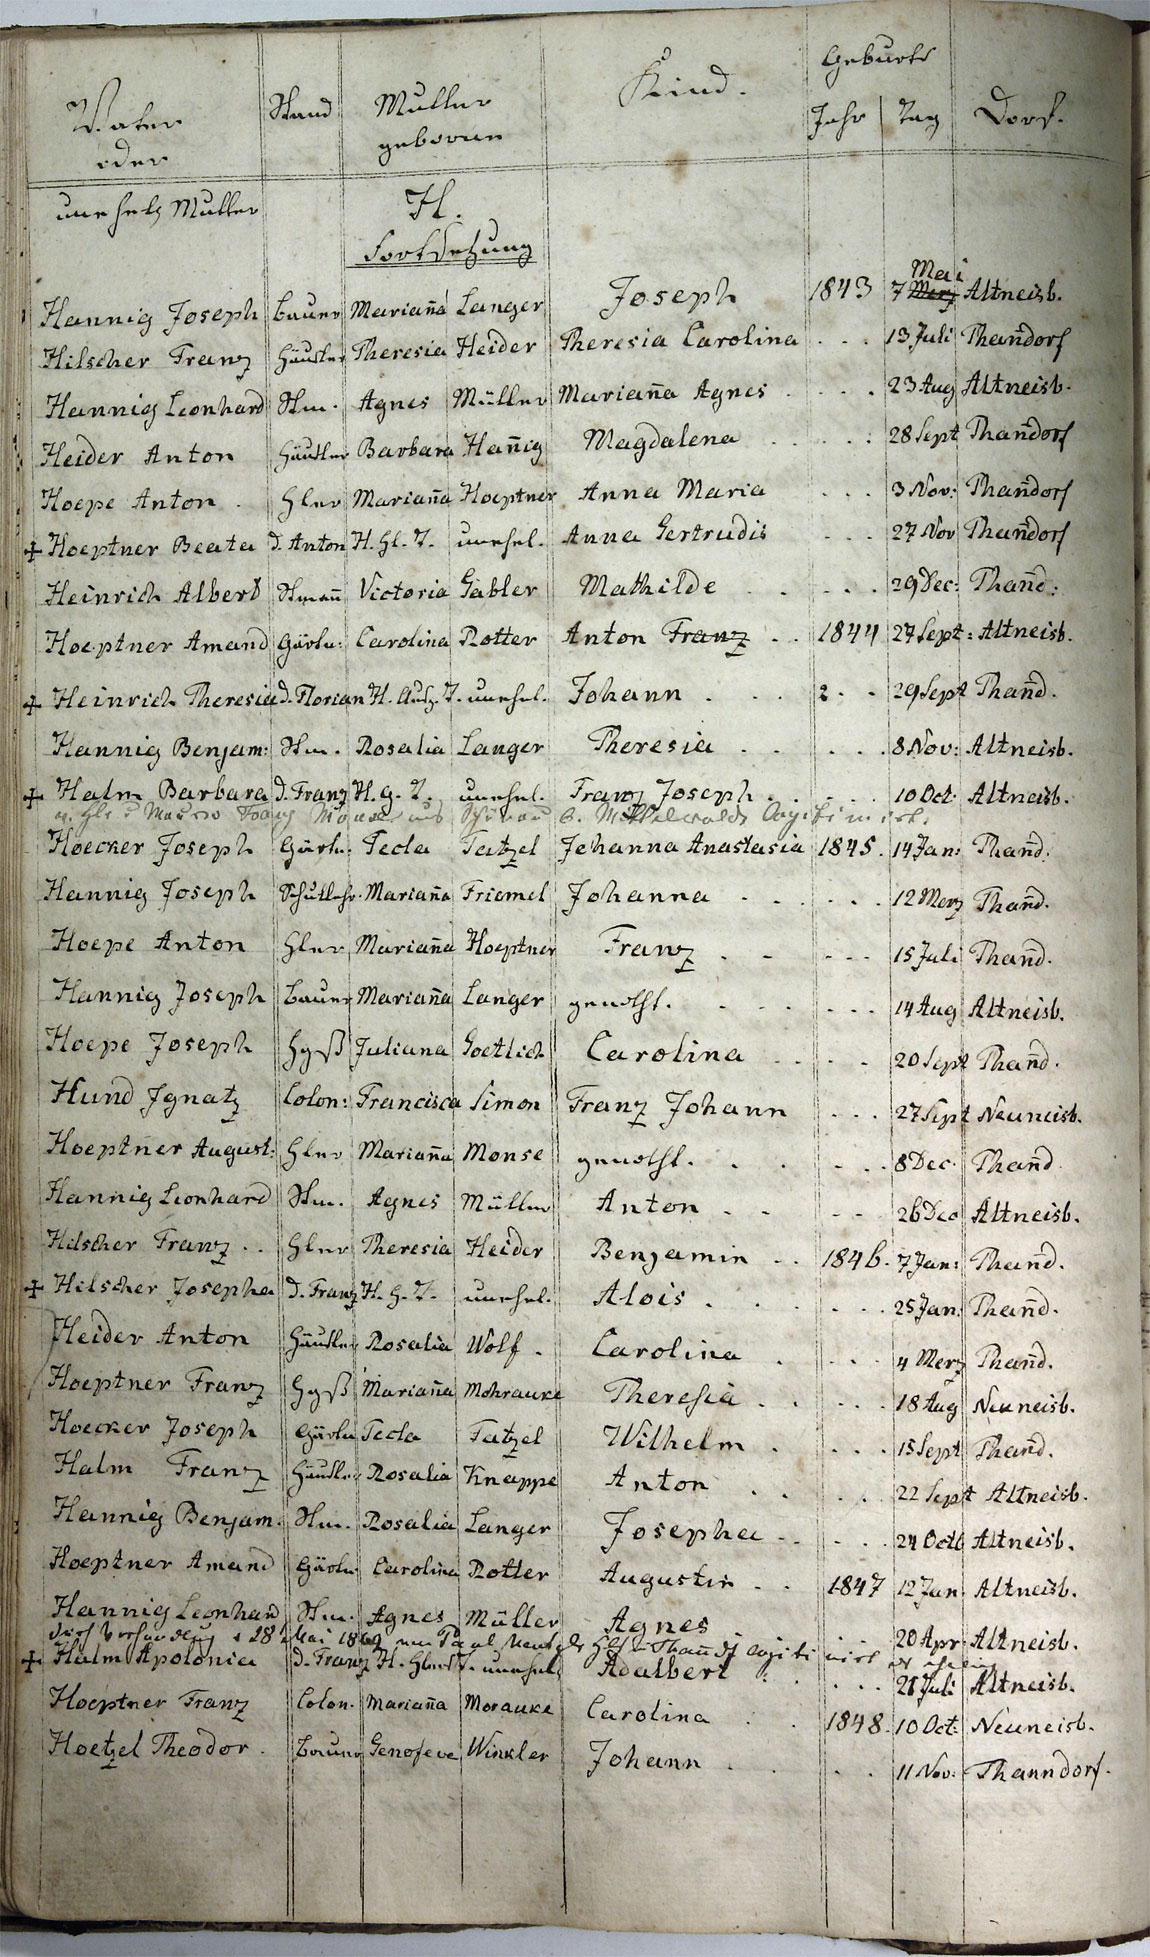 Geburts
Vater Stand Mutter Kind. Jahr Tag Dorf.
oder geboren
unehel. Mutter H.
Fortsetzung
Hannig Joseph Bauer Marian̄a Langer Joseph 1843 7 Merz Mai Altneisb.
Hilscher Franz Häusler Theresia Heider Theresia Carolina . . . 13 Juli Than̄dorf
Hannig Leonhard Stm. Agnes Müller Marian̄a Agnes . . . . 23 Aug Altneisb.
Heider Anton Häusler Barbara Han̄ig Magdalena . . . . . 28 Sept Than̄dorf
Hoepe Anton . Hler Marian̄a Hoeptner Anna Maria . . . 3 Nov: Than̄dorf
+ Hoeptner Beata d. Anton H. Hl. T. unehel. Anna Gertrudis . . . 27 Nov Than̄dorf
Heinrich Albert Stman̄ Victoria Gabler Mathilde . . . . . 29 Dec: Than̄d:
Hoeptner Amand Gärtn: Carolina Rotter Anton Franz . . 1844 27 Sept: Altneisb.
+ Heinrich Theresia d. Florian H. Ausz. T. unehel. Johann . . . . . 29 Sept Than̄d.
Hannig Benjam: Stm. Rosalia Langer Theresia . . . . . 8 Nov: Altneisb.
+ Halm Barbara d. Franz H. G. T. unehel. Franz Joseph . . . . 10 Oct. Altneisb.
Hoecker Joseph Gärtn: Tecla Tatzel Johanna Anastasia 1845. 14 Jan: Than̄d.
Hannig Joseph Schullehr. Marian̄a Friemel Johanna . . . . . . 12 Merz Than̄d.
Hoepe Anton Hler Marian̄a Hoeptner Franz . . . . . 15 Juli Than̄d.
Hannig Joseph Bauer Marian̄a Langer genothl. . . . . . . 14 Aug Altneisb.
Hoepe Joseph Hgß Juliana Goetlich Carolina . . . . 20 Sept Than̄d.
Hund Ignatz Colon: Francisca Simon Franz Johann . . . 27 Sept Neuneisb.
Hoeptner August: Hler Marian̄a Monse genothl. . . . . . 8 Dec. Than̄d
Hannig Leonhard Stm. Agnes Müller Anton . . . . 26 Dec Altneisb.
Hilscher Franz . . Hler Theresia Heider Benjamin . . 1846. 7 Jan: Than̄d.
+ Hilscher Josepha d. Franz H. H. T. unehel. Alois . . . . . . 25 Jan: Than̄d.
Heider Anton Häusler Rosalia Wolf . Carolina . . . . 4 Merz Than̄d.
Hoeptner Franz Hgß Marian̄a Mohrauke Theresia . . . . . 18 Aug Neuneisb.
Hoecker Joseph Gärtn Tecla Tatzel Wilhelm . . . . 15 Sept Than̄d.
Halm Franz Häusler Rosalia Knappe Anton . . . . 22 Sept Altneisb.
Hannig Benjam. Stm. Rosalia Langer Josepha . . . . 24 Octb Altneisb.
Hoeptner Amand Gärtn Carolina Rotter Augustin . . 1847 12 Jan. Altneisb.
Hannig Leonhard Stm. Agnes Müller Agnes 20 Apr Altneisb.
+ Halm Apolonia d. Franz H. Hlers T. unehel. Adalbert . . . . 21 Juli Altneisb.
Hoeptner Franz Colon. Marian̄a Morauke Carolina . . 1848. 10 Oct: Neuneisb.
Hoetzel Theodor . Bauer Genofeve Winkler Johann . . . . 11 Nov: Thanndorf.